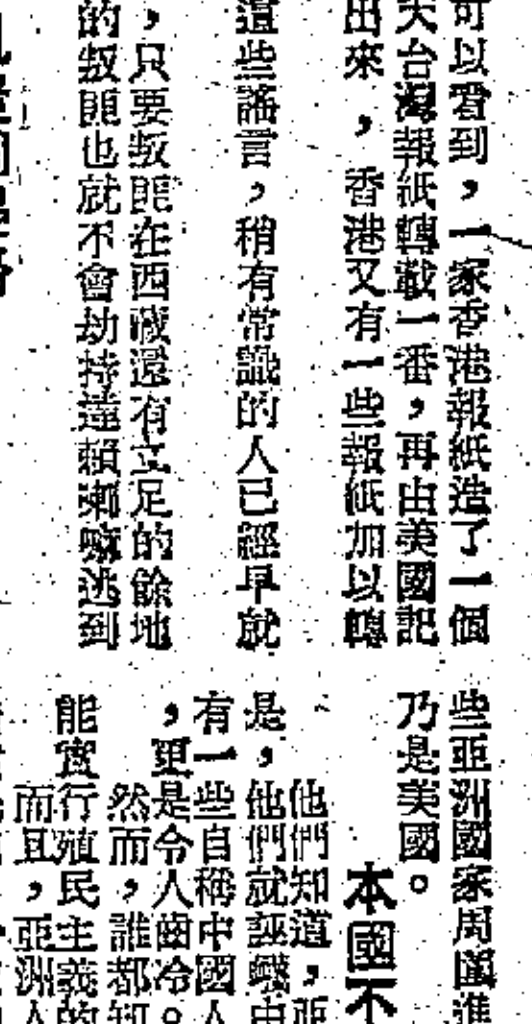 可以看到，一家香港報紙造了一個
天台灣報紙轉載一番，再由美國記
出來，香港又有一些報紙加以轉
這些謠言，稍有常識的人已經早就
，只要叛匪在西藏還有立足的餘地
的叛匪也就不會劫持達賴喇嘛逃到
些亞洲國家周圍進
乃是美國。
本國不
他們知道，亞
是，他們就誣衊中
有一些自稱中國人
，更是令人齒冷。
然而，誰都知
能實行殖民主義的
而且，亞洲人